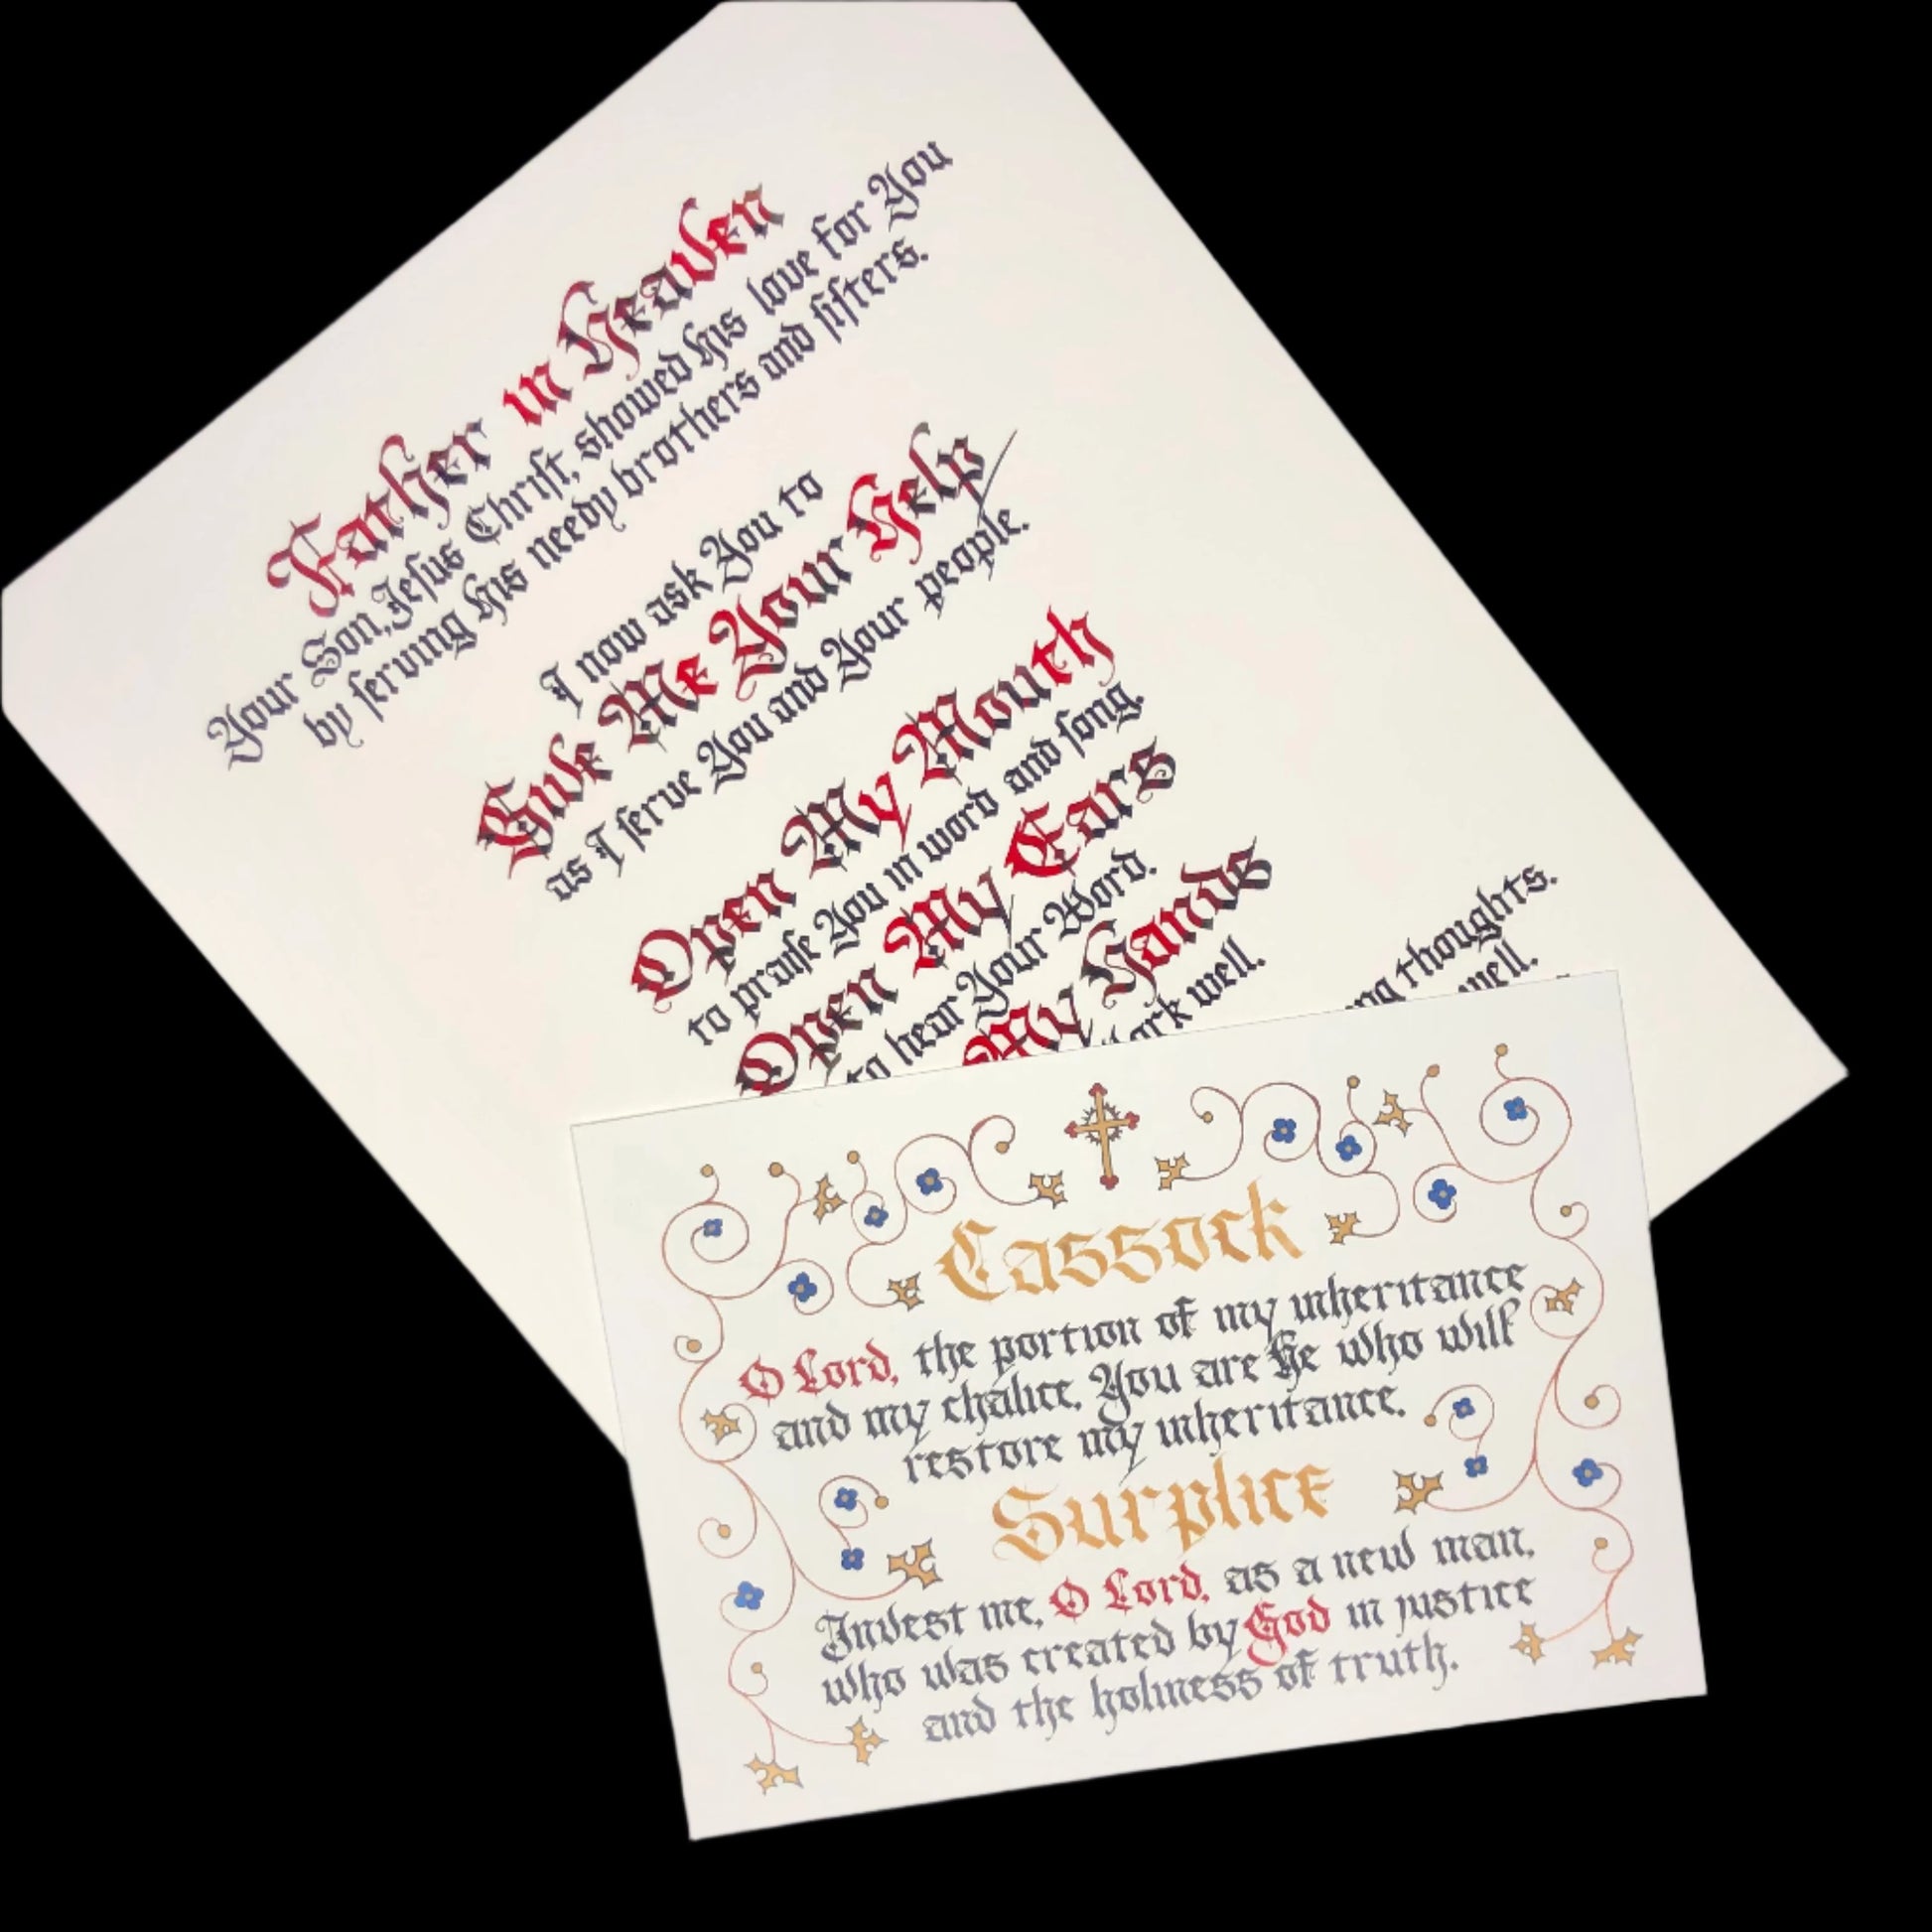 Father in Heaven
Your Son, Jeſus Chriſt, showed His love for You
by ſerving His needy brothers and ſiſters.
I now ask You to
Give Me Your Help
as I ſerve You and Your people.
Open My Mouth
to praiſe You in word and ſong.
Open My Ears
to hear Your Word.
My Hands
well.
thoughts.
well.
Cassock
O Lord, the portion of my inheritance
and my chalice, You are He who will
restore my inheritance.
Surplice
Invest me, O Lord, as a new man,
who was created by God in justice
and the holiness of truth.